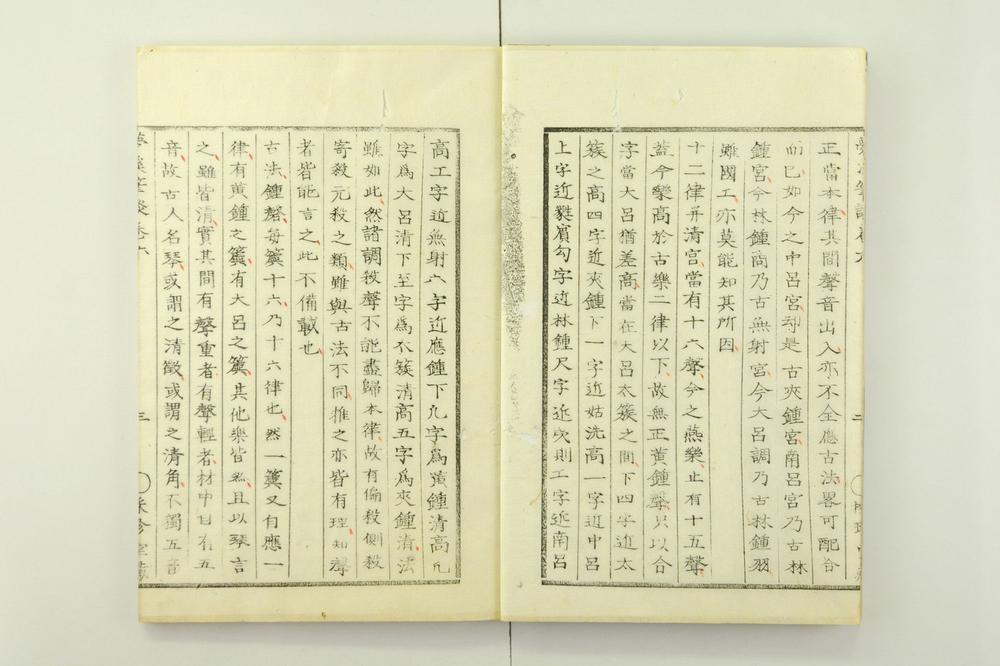 正當本律其間聲音出入亦不全應古法畧可配合
而已如今之中呂宮却是古夾鍾宮南呂宮乃古林
鍾宮今林鍾商乃古無射宮今大呂調乃古林鍾羽
雖國工亦莫能知其所因
十二律并清宮當有十六聲今之燕樂止有十五聲
蓋今樂高於古樂二律以下故無正黃鍾聲只以合
字當大呂猶差高當在大呂太簇之間下四字近太
簇之高四字近夾鍾下一字近姑洗高一字近中呂
上字近蕤賓勾字近林鍾尺字近夾則工字近南呂
高工字近無射六字近應鍾下凡字爲黃鍾清高凡
字爲大呂清下五字爲太簇清高五字爲夾鍾清法
雖如此然諸調殺聲不能盡歸本律故有偏殺側殺
寄殺元殺之類雖與古法不同推之亦皆有理知聲
者皆能言之此不備載也
古法鍾磬每簴十六乃十六律也然一簴又自應一
律有黃鍾之簴有大呂之簴其他樂皆然且以琴言
之雖皆清實其間有聲重者有聲輕者材中自有五
音故古人名琴或謂之清徵或謂之清角不獨五音
三